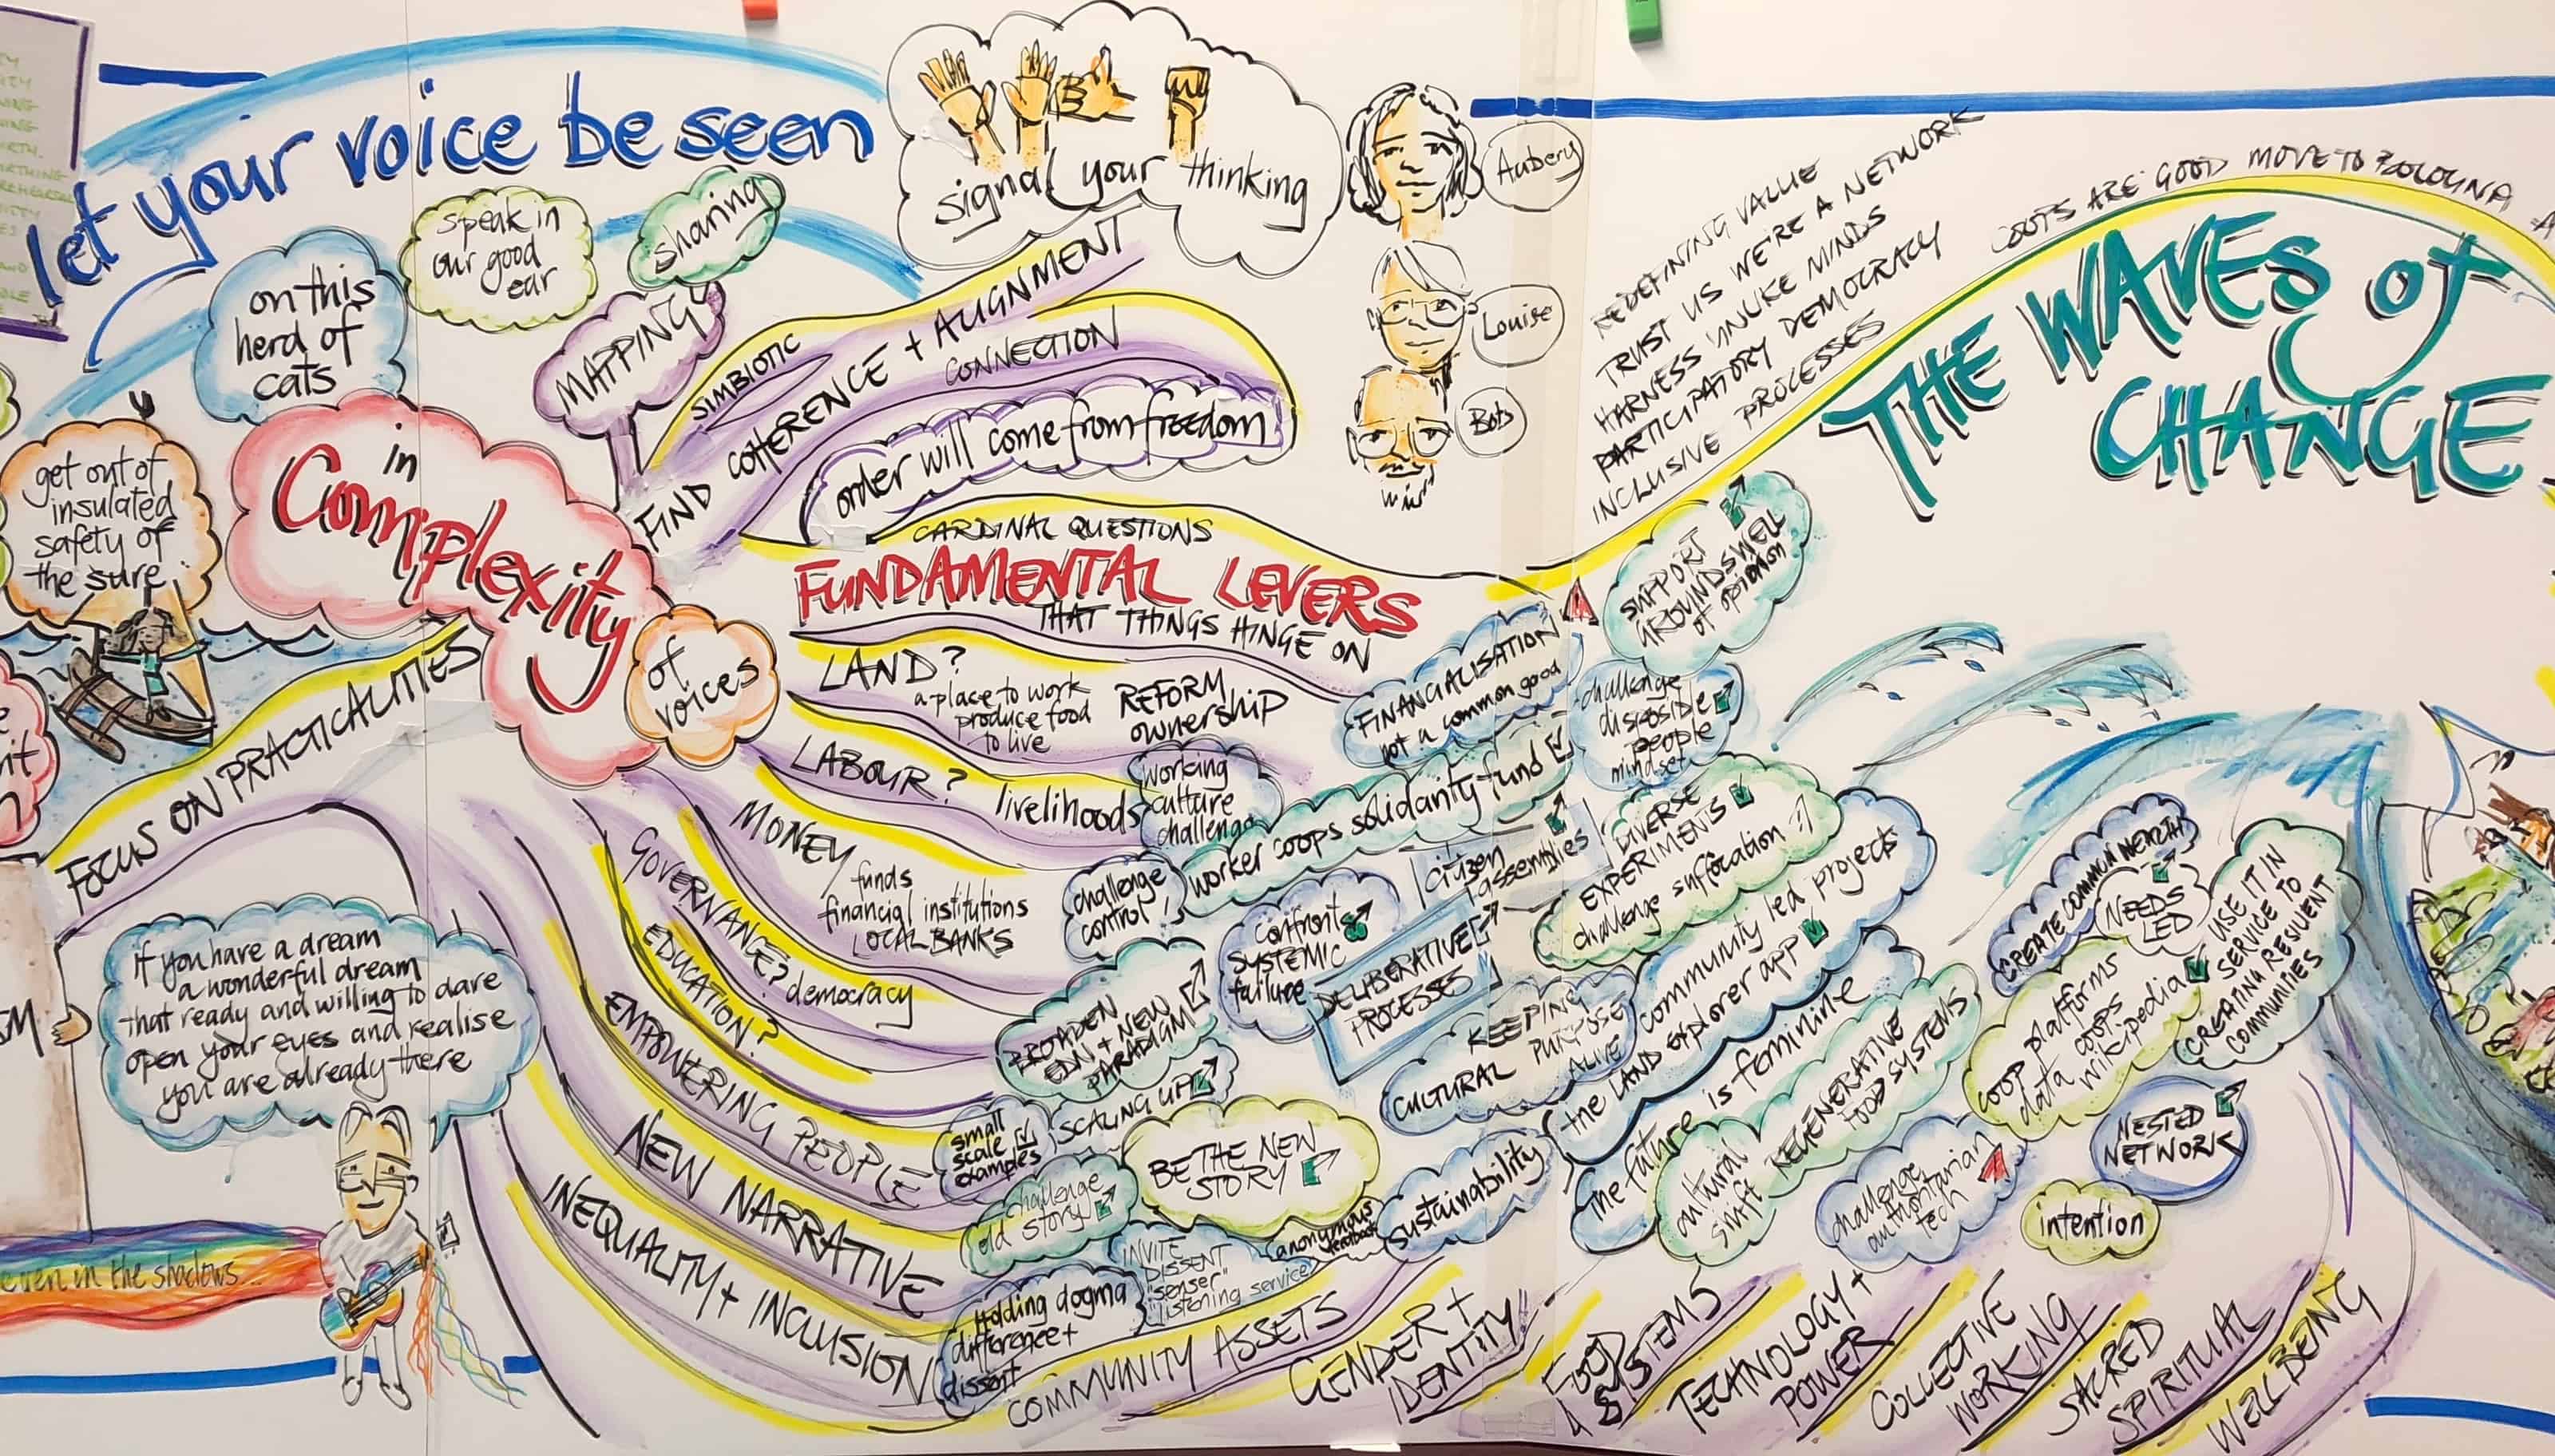 let your voice be seen
on this
herd of
cats
speak in
our good
ear
sharing
MAPPING
signal your thinking
Aubery
Louise
Bobs
get out of
insulated
safety of
the sure
in
Complexity
of
voices
SIMBIOTIC
FIND COHERENCE + ALIGNMENT
CONNECTION
order will come from freedom
FOCUS ON PRACTICALITIES
CARDINAL QUESTIONS
FUNDAMENTAL LEVERS
THAT THINGS HINGE ON
LAND?
a place to work
produce food
to live
REFORM
ownership
LABOUR?
livelihoods
working
culture
challenge
MONEY
funds
financial institutions
LOCAL BANKS
GOVERNANCE? democracy
EDUCATION?
EMPOWERING PEOPLE
NEW NARRATIVE
INEQUALITY + INCLUSION
COMMUNITY ASSETS
GENDER +
IDENTITY
FOOD
SYSTEMS
TECHNOLOGY +
POWER
COLLECTIVE
WORKING
SACRED
SPIRITUAL
WELL BEING
REDEFINING VALUE
TRUST US WE'RE A NETWORK
HARNESS UNLIKE MINDS
PARTICIPATORY DEMOCRACY
INCLUSIVE PROCESSES
COOPS ARE GOOD MOVE TO BOLOGNA
THE WAVES of
CHANGE
SUPPORT
GROUNDSWELL
of opinion
FINANCIALISATION
not a common good
challenge
people
mindset
worker coops solidarity fund
challenge
control!
citizen
assemblies
DIVERSE
EXPERIMENTS
challenge suffocation!
confront
SYSTEMIC
failure
DELIBERATIVE
PROCESSES
community led projects
the LAND explorer app
KEEPING
PURPOSE
ALIVE
CULTURAL
BROADEN
EDN + NEW
PARADIGM
SCALING UP
small
scale
examples
the future is feminine
REGENERATIVE
FOOD SYSTEMS
cultural
shift
BE THE NEW
STORY
challenge
old story
INVITE
DISSENT
"senser"
"listening service"
anonymous
feedback
sustainability
Holding dogma
difference +
dissent
challenge
authoritarian
tech
CREATE COMMON WEALTH
NEEDS
LED
USE IT IN
SERVICE TO
CREATING RESILIENT
COMMUNITIES
coop platforms
data coops
wikipedia
NESTED
NETWORK
intention
if you have a dream
a wonderful dream
that ready and willing to dare
open your eyes and realise
you are already there
even in the shadows...